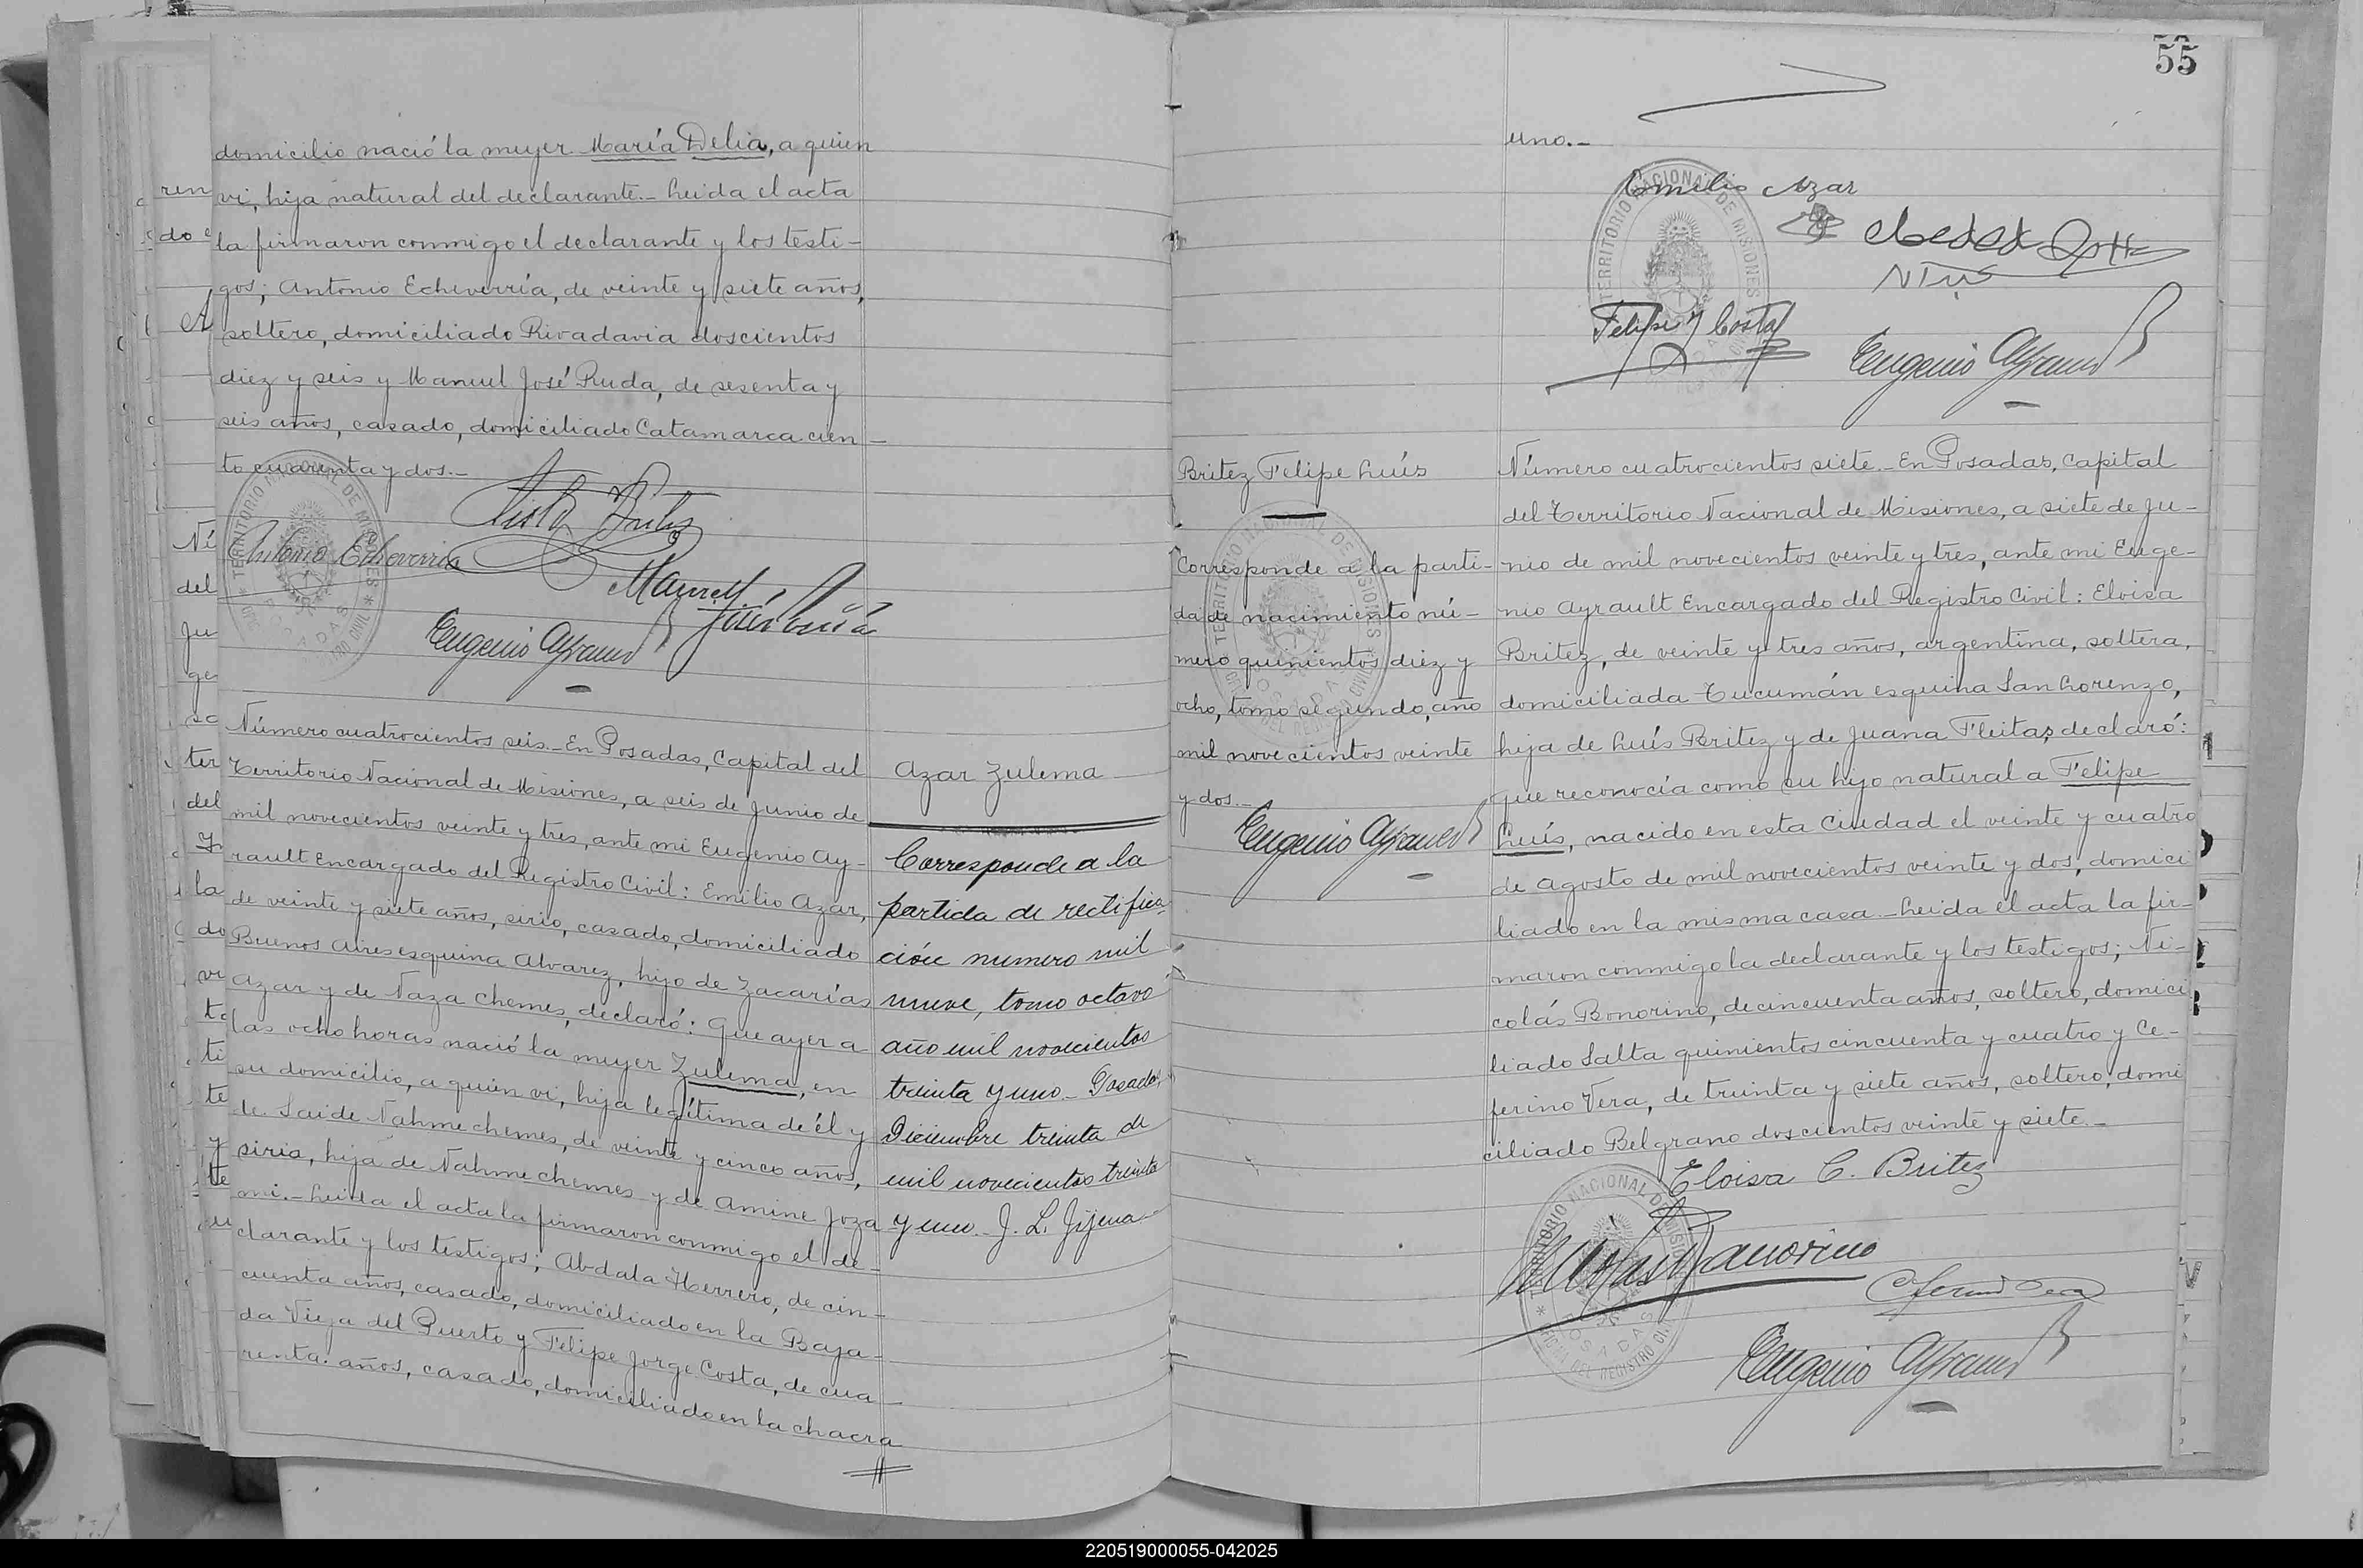 domicilio nació la mujer María Delia, a quien
vi, hija natural del declarante.- Leida el acta
la firmaron conmigo el declarante y los testi-
gos; Antonio Echeverría, de veinte y siete años,
soltero, domiciliado Rivadavia doscientos
diez y seis y Manuel José Ruda, de sesenta y
seis años, casado, domiciliado Catamarca cien-
to cuarenta y dos.-
Antonio Echeverria
Manuel
José
Eugenio Ayrault
Número cuatrocientos seis.- En Posadas, Capital del
Territorio Nacional de Misiones, a seis de Junio de
mil novecientos veinte y tres, ante mi Eugenio Ay-
rault Encargado del Registro Civil: Emilio Azar,
de veinte y siete años, sirio, casado, domiciliado
Buenos Aires esquina Alvarez, hijo de Zacarías
Azar y de Naza Chemes, declaró: Que ayer a
las ocho horas nació la mujer Zulema, en
su domicilio, a quien vi, hija legítima de él y
de Saide Nahme chemes, de veinte y cinco años,
siria, hija de Nahme chemes y de Amine Joza
mi.- Leida el acta la firmaron conmigo el de-
clarante y los testigos; Abdala Herrero, de cin-
cuenta años, casado, domiciliado en la Baja-
da Vieja del Puerto y Felipe Jorge Costa, de cua-
renta años, casado, domiciliado en la chacra
Azar Zulema
Corresponde a la
partida de rectifica-
ción numero mil
nueve, tomo octavo
año mil novecientos
treinta y uno.- Posadas,
Diciembre treinta de
mil novecientos treinta
y uno.- J. L. Jijena
55
uno.-
Emilio Azar
Felipe J Costa
Eugenio Ayrault
Britez Felipe Luís
Corresponde a la parti-
da de nacimiento nú-
mero quinientos diez y
ocho, tomo segundo, año
mil novecientos veinte
y dos.-
Eugenio Ayrault
Número cuatrocientos siete.- En Posadas, Capital
del Territorio Nacional de Misiones, a siete de Ju-
nio de mil novecientos veinte y tres, ante mi Euge-
nio Ayrault Encargado del Registro Civil: Eloisa
Britez, de veinte y tres años, argentina, soltera,
domiciliada Tucumán esquina San Lorenzo,
hija de Luís Britez y de Juana Fleitas, declaró:
que reconocía como su hijo natural a Felipe
Luís, nacido en esta Ciudad el veinte y cuatro
de Agosto de mil novecientos veinte y dos, domici
liado en la misma casa.- Leida el acta la fir-
maron conmigo la declarante y los testigos; Ni-
colás Bonorino, de cincuenta años, soltero, domici
liado Salta quinientos cincuenta y cuatro y Ce-
ferino Vera, de treinta y siete años, soltero, domi
ciliado Belgrano doscientos veinte y siete.-
Eloisa C. Britez
Eugenio Ayrault
220519000055-042025